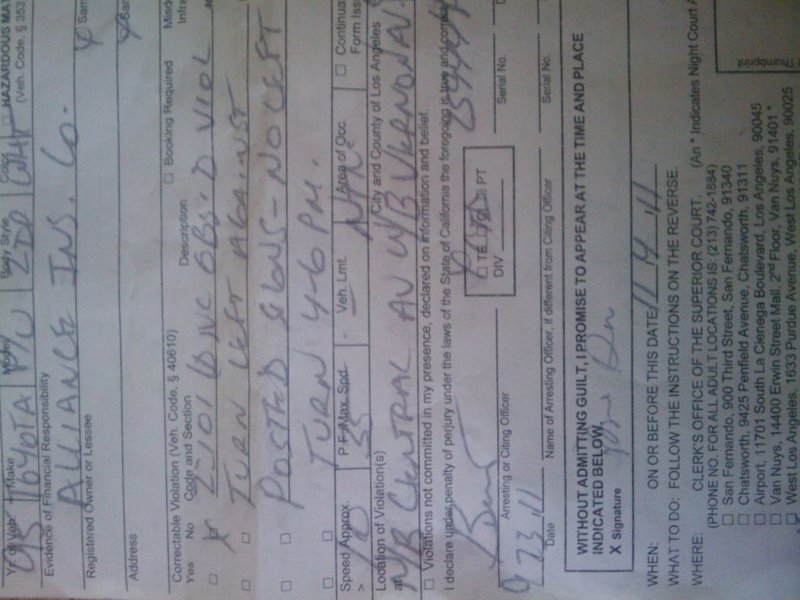 Yr. of Veh. Make Model Body Style Color □ HAZARDOUS MAT
(Veh. Code, § 353
95 TOYOTA P/U 2DR WHT
Evidence of Financial Responsibility
ALLIANCE INS. CO.
Registered Owner or Lessee
Address
Correctable Violation (Veh. Code, § 40610) □ Booking Required
Yes No Code and Section Description
22101 D VC OBS. D VIOL
TURN LEFT AGAINST
POSTED SIGNS - NO LEFT
TURN 4-6 PM.
Speed Approx. P.F./Max. Spd. Veh. Lmt. Area of Occ. □ Continua
Form Iss
10 35
Location of Violation(s) City and County of Los Angeles
at N/B CENTRAL AV W/B VERNON AV
□ Violations not committed in my presence, declared on information and belief.
I declare under penalty of perjury under the laws of the State of California the foregoing is true and correct
Arresting or Citing Officer Serial No.
DIV
9 23 11
Date Name of Arresting Officer, if different from Citing Officer Serial No.
WITHOUT ADMITTING GUILT, I PROMISE TO APPEAR AT THE TIME AND PLACE
INDICATED BELOW.
X Signature
WHEN: ON OR BEFORE THIS DATE 11 14 11
WHAT TO DO: FOLLOW THE INSTRUCTIONS ON THE REVERSE.
WHERE: CLERK'S OFFICE OF THE SUPERIOR COURT. (An * Indicates Night Court A
(PHONE NO. FOR ALL ADULT LOCATIONS IS: (213) 742-1884)
□ San Fernando, 900 Third Street, San Fernando, 91340
□ Chatsworth, 9425 Penfield Avenue, Chatsworth, 91311
□ Airport, 11701 South La Cienega Boulevard, Los Angeles, 90045
□ Van Nuys, 14400 Erwin Street Mall, 2nd Floor, Van Nuys, 91401 *
West Los Angeles, 1633 Purdue Avenue, West Los Angeles, 90025
Thumbprint